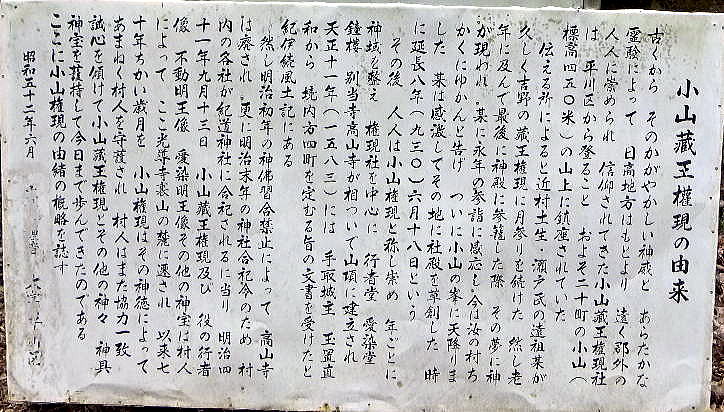 小山藏王權現の由来
古くから そのかがやかしい神威と あらたかな
靈驗によって 日高地方はもとより 遠く郡外の
人人に崇められ 信仰されてきた小山藏王權現社
は 平川区から登ること およそ二十町の小山(
標高四五〇米)の山上に鎮座されていた
伝える所によると近村土生・瀬戸氏の遠祖某が
久しく吉野の藏王權現に月参りを続けた 然し老
年に及んで最後に神殿に参籠した際 その夢に神
が現われ 某に永年の参詣に感応し今は汝の村ち
かくにゆかんと告げ ついに小山の峯に天降りま
した 某は感激してその地に社殿を草創した 時
に延長八年(九三〇)六月十八日という
その後 人人は小山權現と称し崇め 年ごとに
神域を整え 權現社を中心に 行者堂 愛染堂
鐘楼 別当寺高山寺が相ついで山頂に建立され
天正十一年(一五八三)には 手取城主 玉置直
和から 境内方四町を定むる旨の文書を受けたと
紀伊続風土記にある
然し明治初年の神佛習合禁止によって 高山寺
は廃され 更に明治末年の神社合祀令のため 村
内の各社が紀道神社に合祀されるに当り 明治四
十一年九月十三日 小山藏王權現及び 役の行者
像 不動明王像 愛染明王像その他の神宝は村人
によって ここ光導寺裏山の麓に遷され 以来七
十年ちかい歳月を 小山權現はその神徳によって
あまねく村人を守護され 村人はまた協力一致
誠心を傾けて小山藏王權現とその他の神々 神具
神宝を護持して今日まで歩んできたのである
ここに小山權現の由緒の概略を誌す
昭和五十二年六月